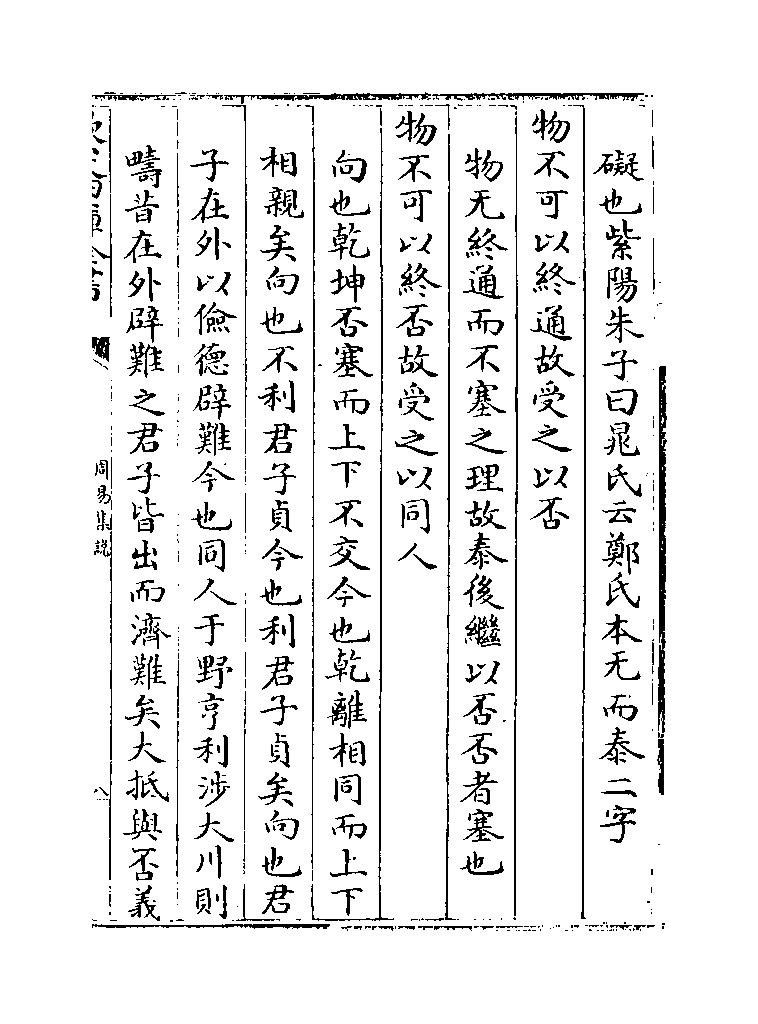 礙也紫陽朱子曰晁氏云鄭氏本无而泰二字
物不可以終通故受之以否
物无終通而不塞之理故泰後繼以否否者塞也
物不可以終否故受之以同人
向也乾坤否塞而上下不交今也乾離相同而上下
相親矣向也不利君子貞今也利君子貞矣向也君
子在外以儉德辟難今也同人于野亨利涉大川則
疇昔在外辟難之君子皆出而濟難矣大抵與否義
周易集說
八